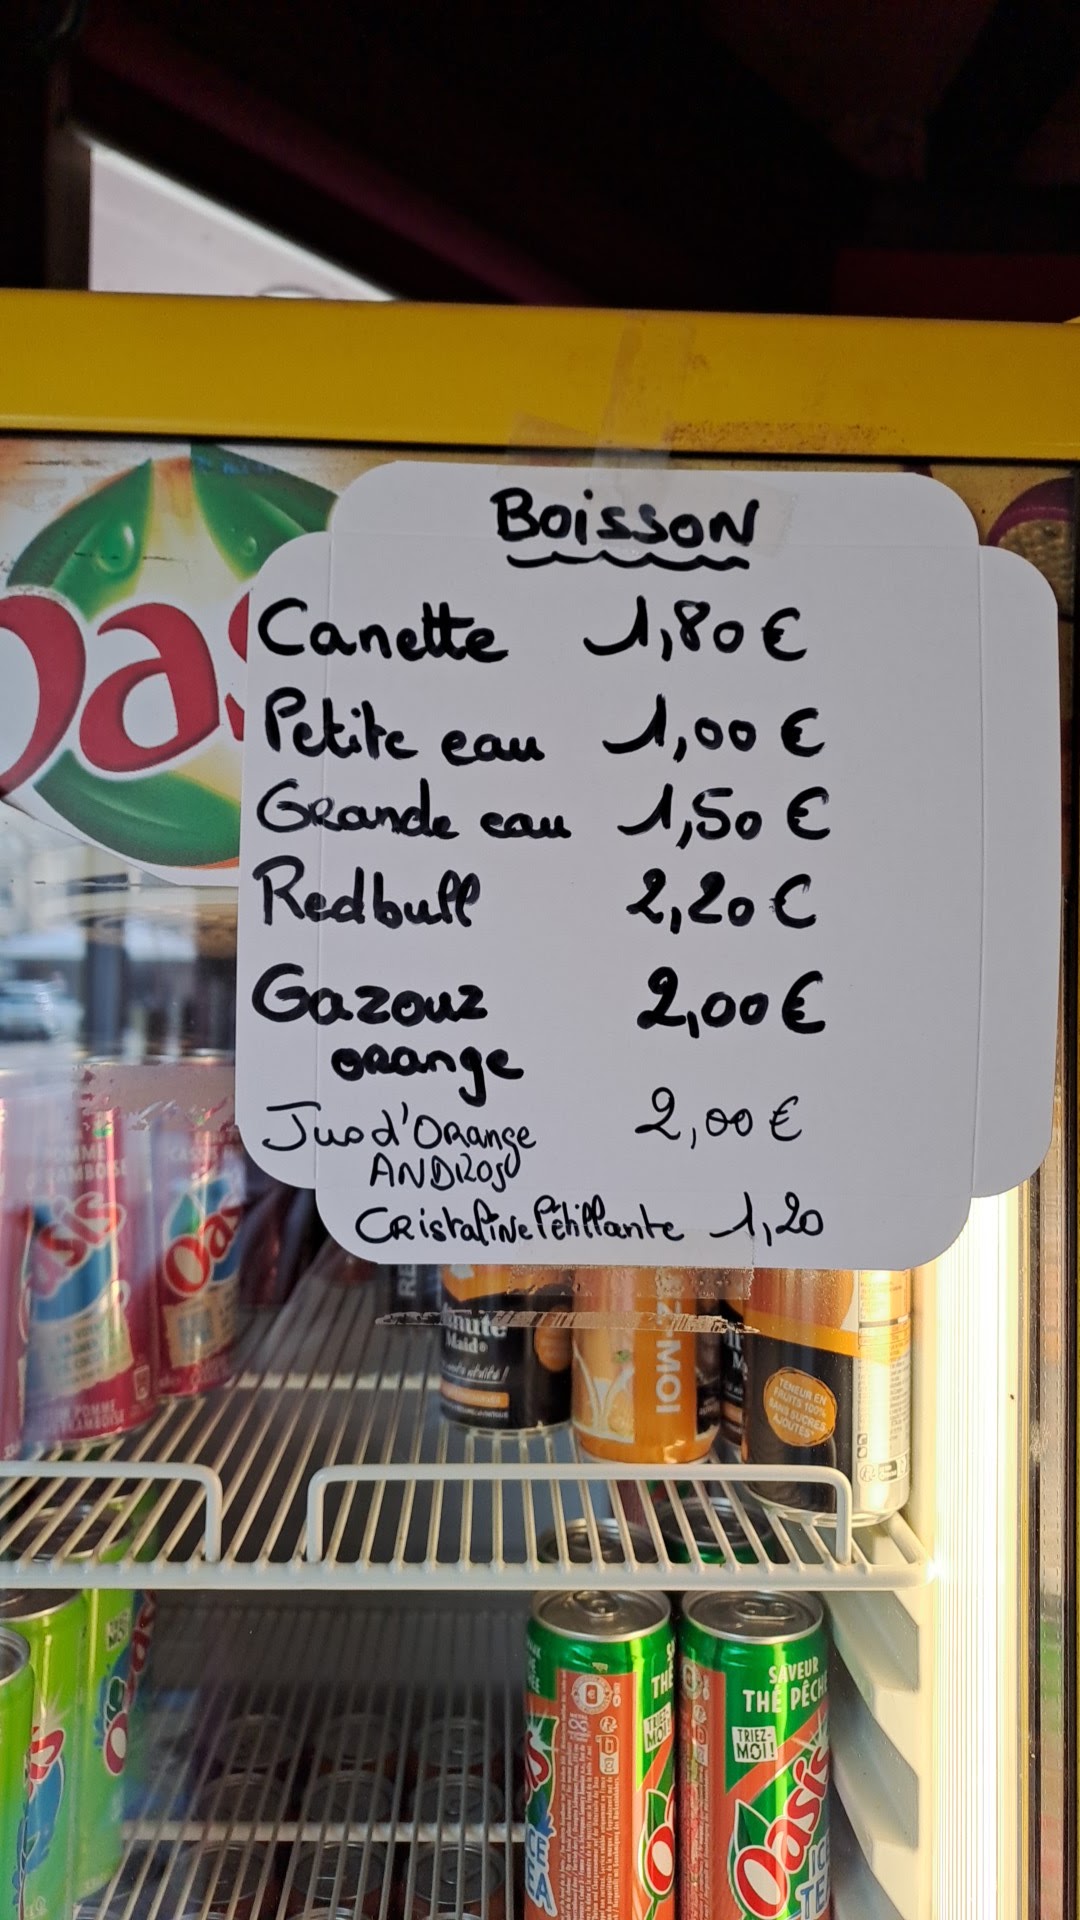 BOISSON
Canette 1,80 €
Petite eau 1,00 €
Grande eau 1,50 €
Redbull 2,20 €
Gazouz 2,00 €
orange
Jus d'Orange 2,00 €
ANDROS
Cristaline Pétillante 1,20
Oasis
POMME
Oasis
Oasis
POMME
FRAMBOISE
CASSIS
Minute
Maid
MOI
TENEUR EN
FRUITS 100%
SANS SUCRES
AJOUTÉS
TRIEZ-
MOI!
Oasis
SAVEUR
THÉ PÊCHE
TRIEZ-
MOI!
Oasis
ICE
TEA
ICE
TEA